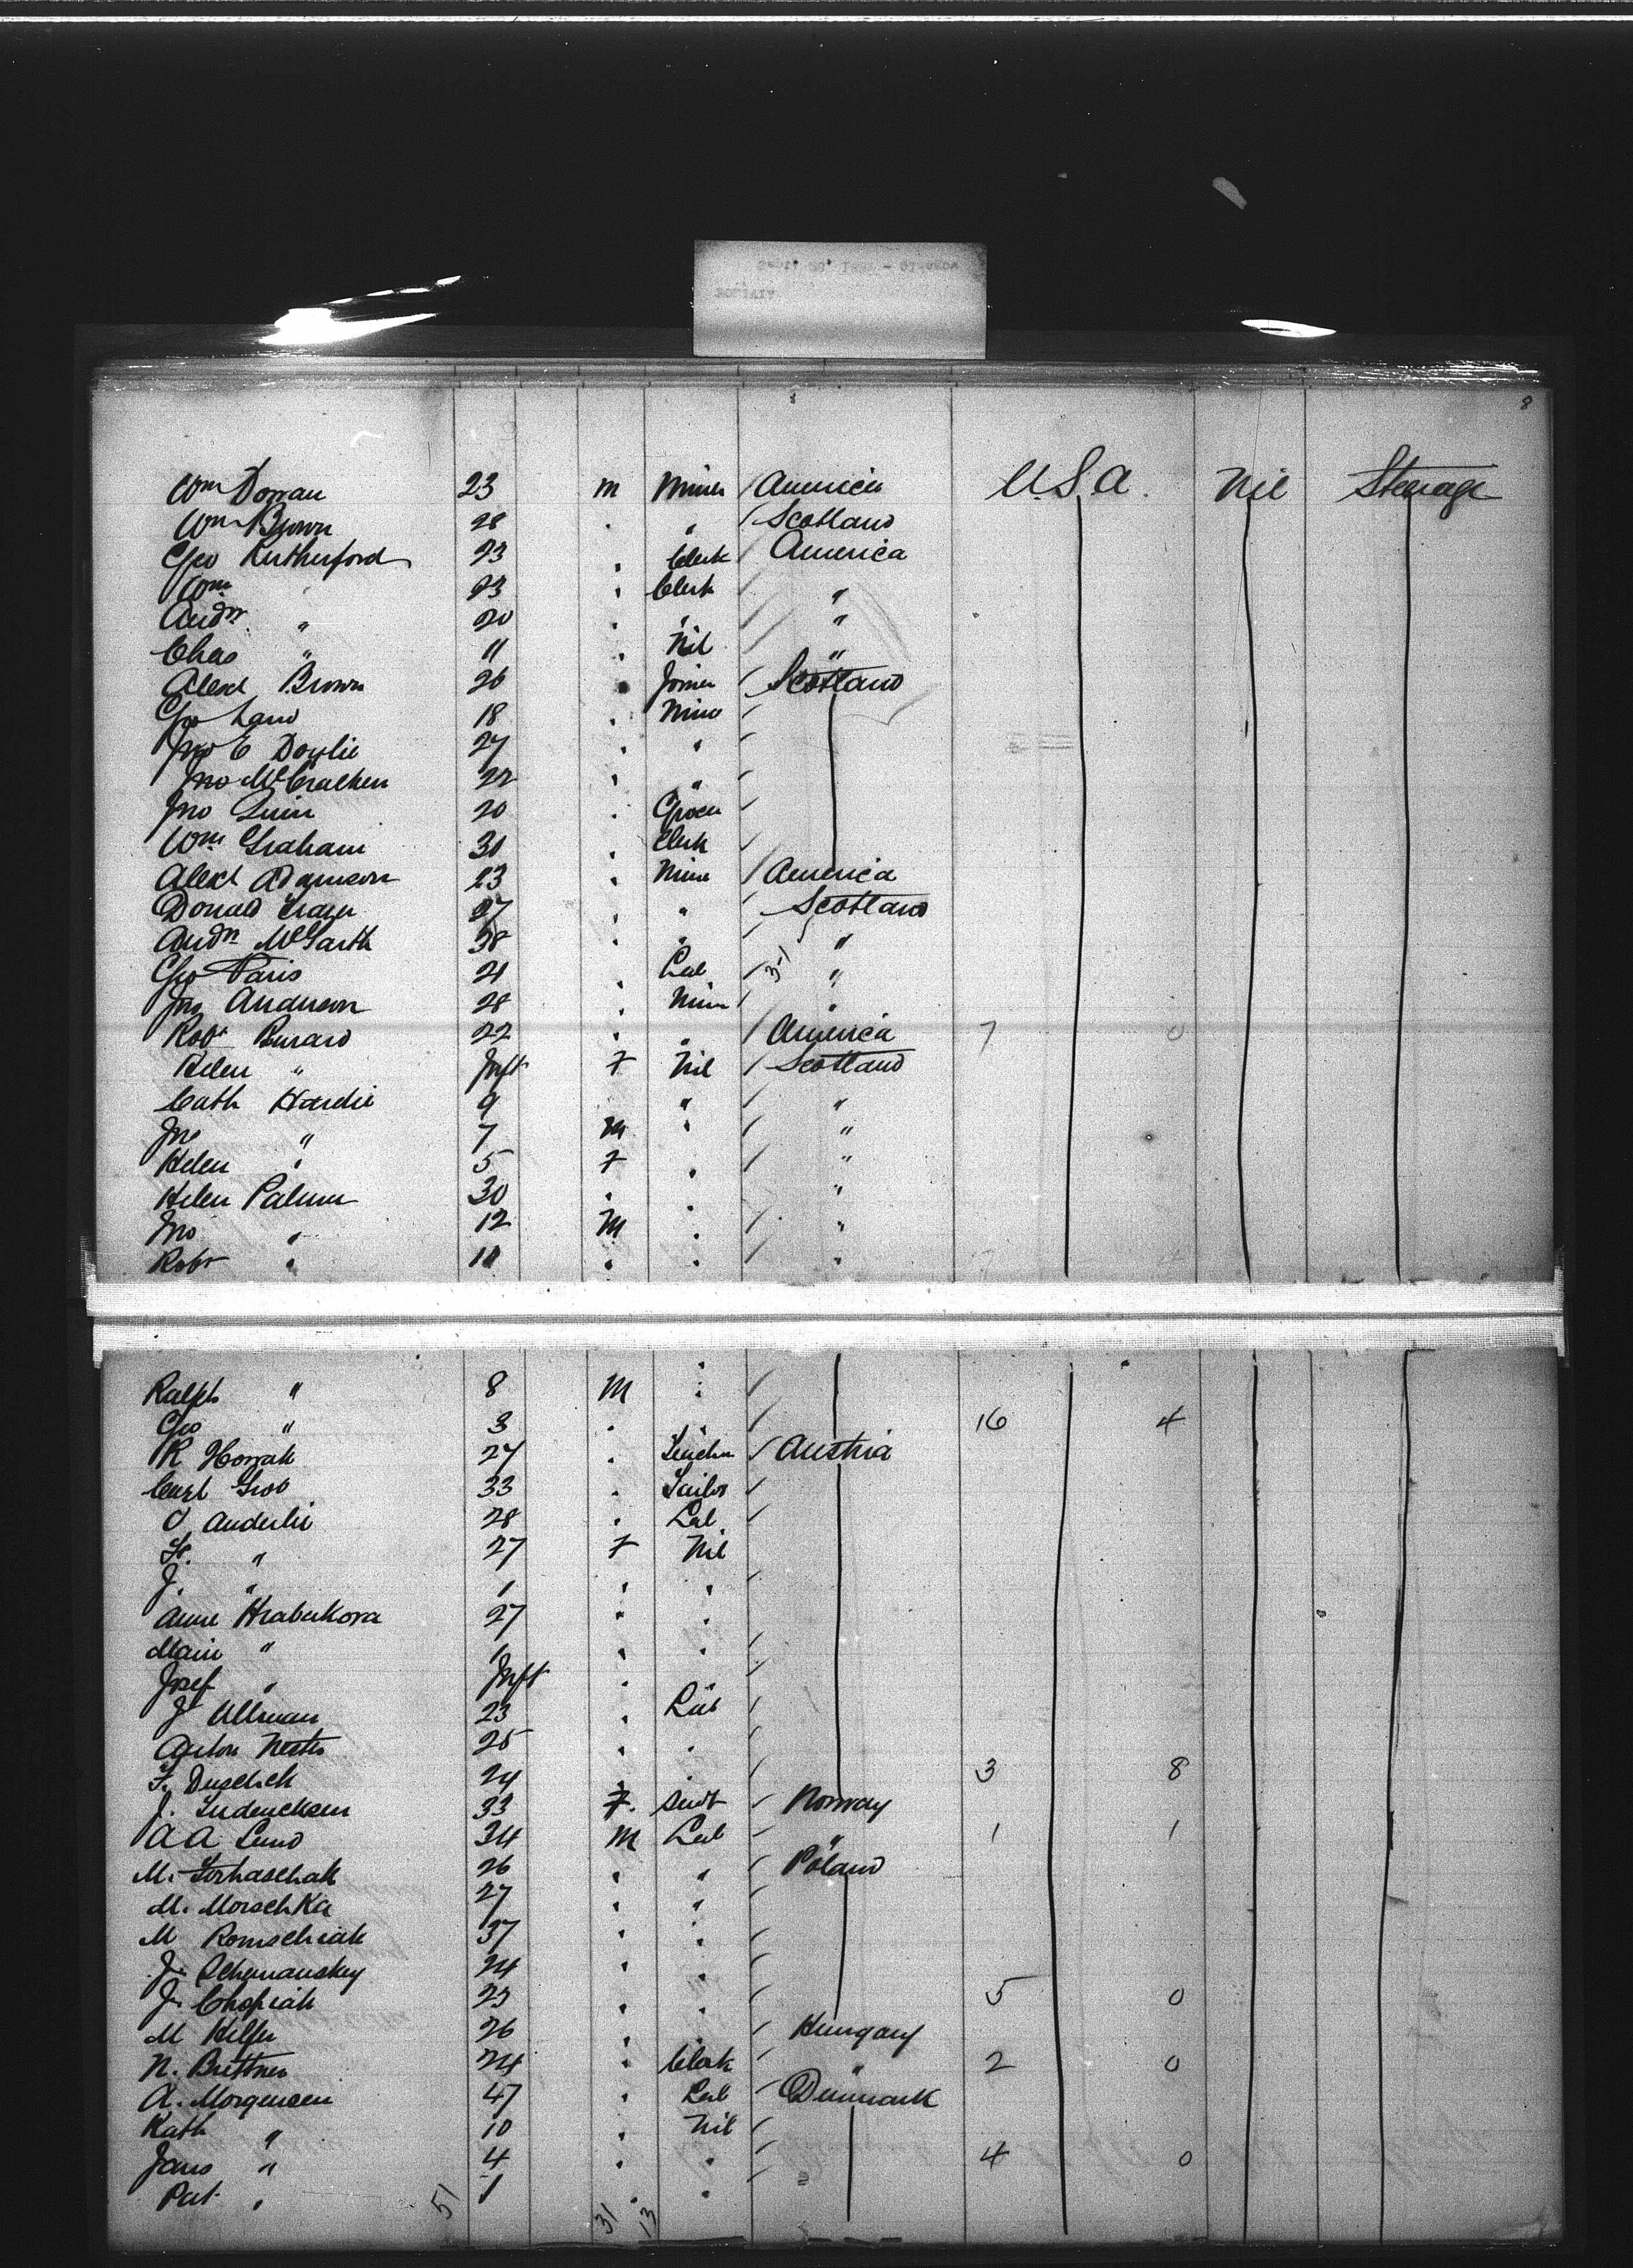 8
Wm Dorran 23 m Miner / America U.S.A. Nil Steerage
Wm Brown 28 . " / Scotland
Geo Rutherford 23 . Clerk America
Wm " 23 . Clerk / "
Andw " 20 . " / "
Chas " 11 . Nil / "
Alexd Brown 26 . Joiner / Scotland
Geo 18 . Miner /
Jno E Doylie 27 . " /
Jno McCracken 22 . " /
Jno Quin 20 . Grocer /
Wm Graham 31 . Clerk /
Alexd Adamson 23 . Miner / America
Donald 27 . " Scotland
Andw 38 . " / "
Geo Paris 21 . Lab / 3-1 "
Jno Anderson 28 . Miner / "
Robt 22 . " / America 7 0
Helen " Inft F Nil / Scotland
Cath Hardie 9 " / "
Jno " 7 M " / "
Helen " 5 F . / "
Helen Palmer 30 . . "
Jno " 12 M . / "
Robt " 11 . . / "
Ralph " 8 M " /
Geo " 3 . " / 16 4
R 27 . / Austria
Carl 33 . Tailor /
28 . Lab /
" 27 F Nil
J. " 1 . . /
Anne Hrabukova 27 . .
Marie " 1 . . /
Josef " Inft . /
J Ullman 23 . Lab /
Anton 25 . . /
F. Duschek 24 . . / 3 8
J. 33 F. Servt / Norway
A A Lund 34 M Lab / " 1 1
M. 26 . " / Poland
M. Morschka 27 . " /
M Romschiak 37 . .
J. Schemanskey 24 . . /
J. Chopiak 23 . . / 5 0
M 26 . . / Hungary
N. Brettner 24 . Clerk / " 2 0
A. Morgensen 47 . Lab / Denmark
Kath " 10 . Nil /
Jans " 4 . . / 4 0
Pet " 1 . . /
51 31 13